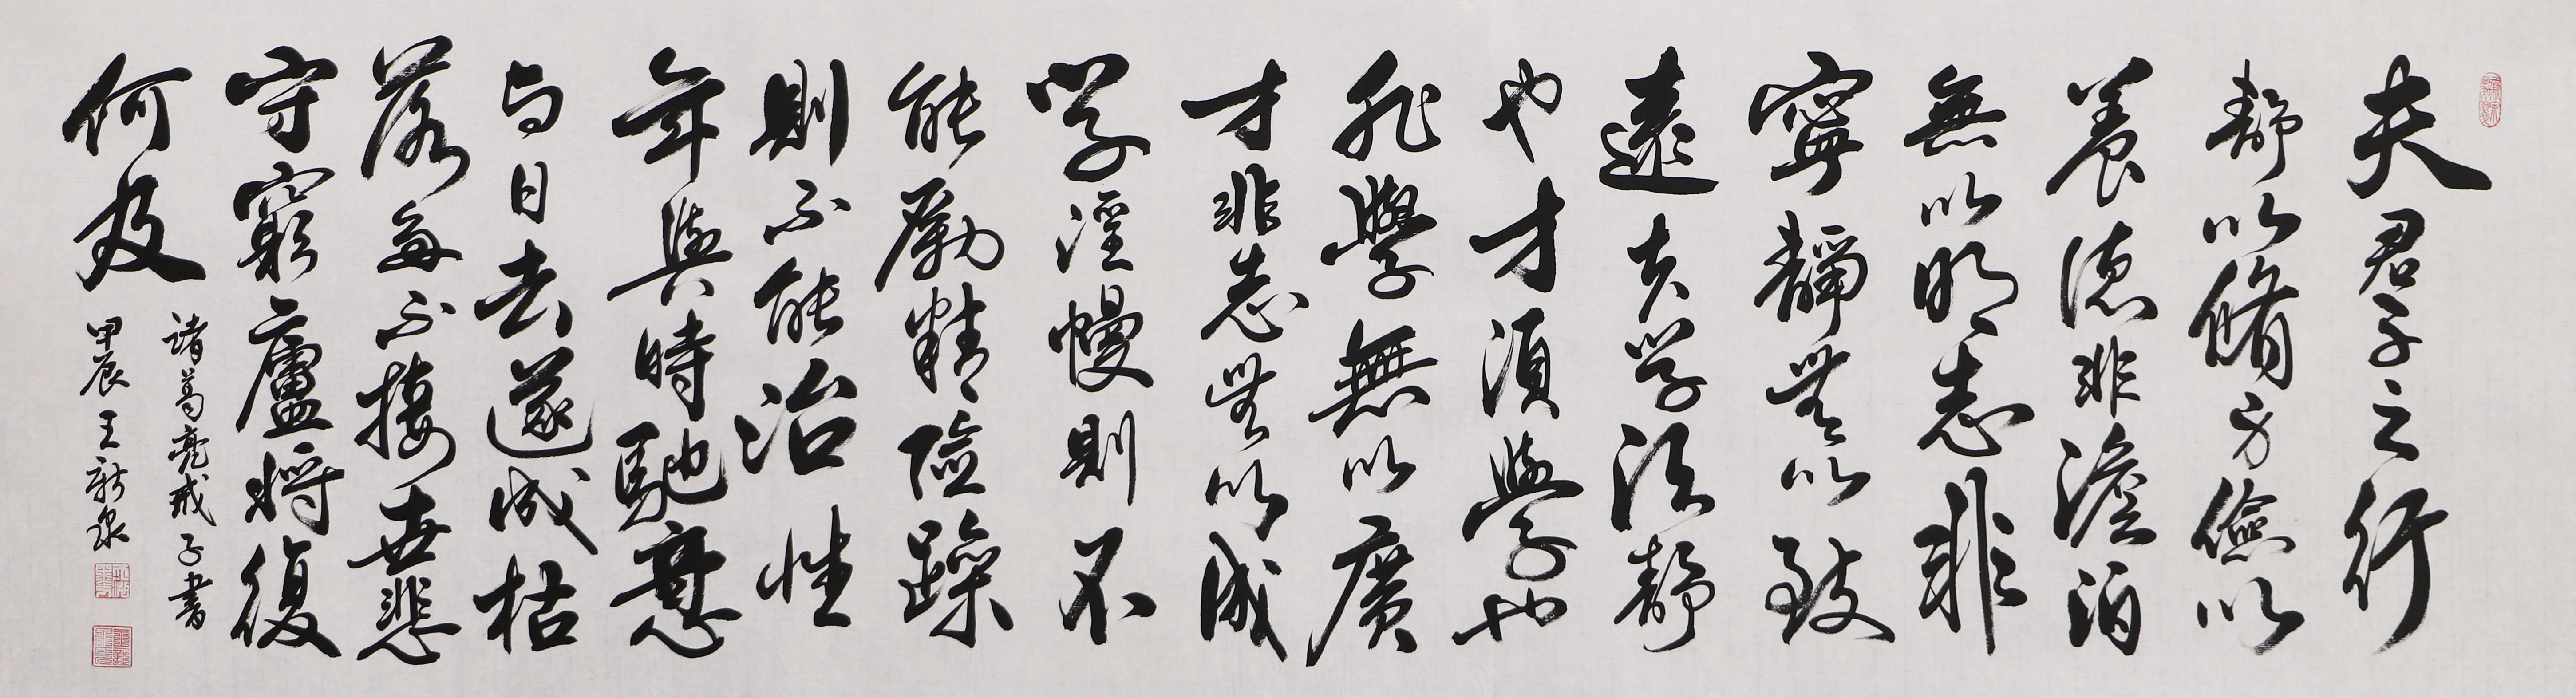 夫君子之行
靜以脩身儉以
養德非澹泊
無以明志非
寧靜無以致
遠夫学須靜
也才須學也
非學無以廣
才非志無以成
学淫慢則不
能勵精險躁
則不能治性
年與時馳意
与日去遂成枯
落多不接世悲
守窮廬將復
何及
諸葛亮戒子書
甲辰 王新泉